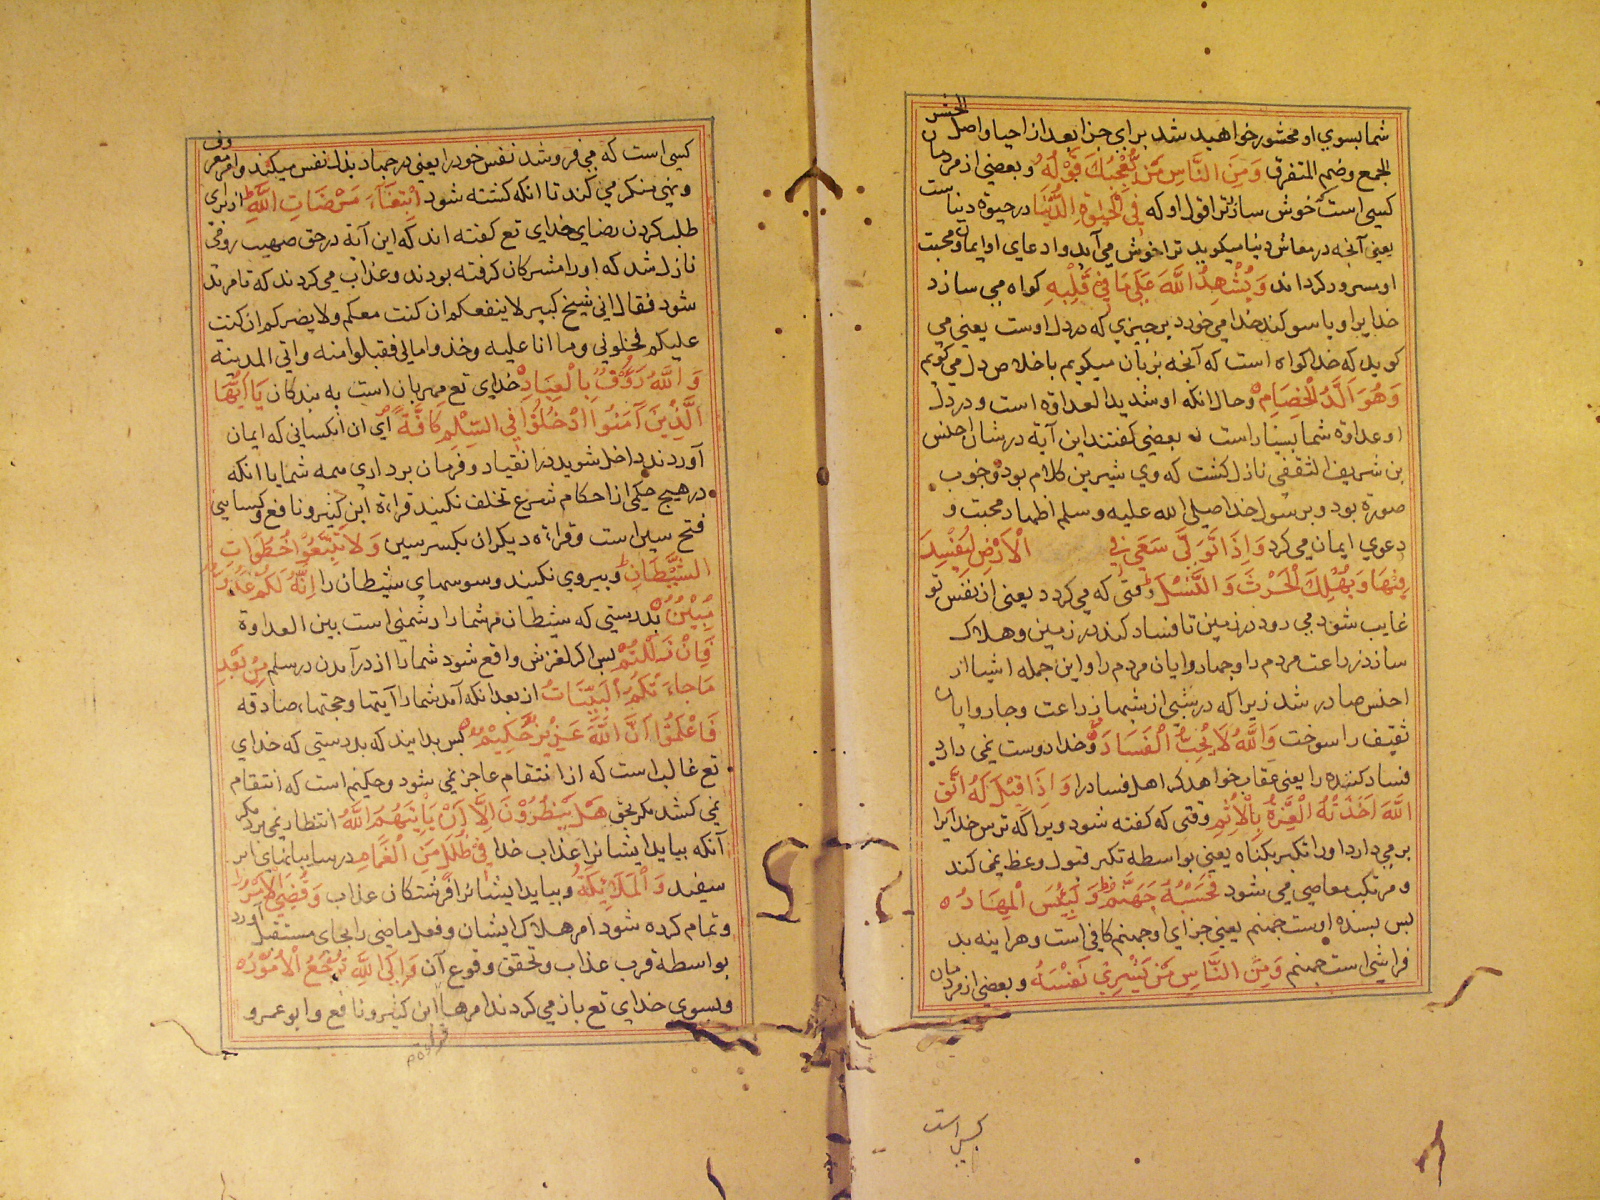 الحشر
شما بسوي او محشور خواهید شد براي جزا بعد از احیا و اصل
الجمع و ضم المتفرق وَمِنَ النَّاسِ مَنْ يُعْجِبُكَ قَوْلُهُ و بعضي از مردمان
کسي است که خوش سازد ترا قول او که فِي الْحَيٰوةِ الدُّنْيَا در حیوة دنیاست
یعني آنچه در معاش دنیا میکوید ترا خوش مي آید و ادعاي او ایمان و محبت
او مسرور کرداند وَيُشْهِدُ اللَّهَ عَلَى مَا فِي قَلْبِهِ کواه مي سازد
خدایرا و یا سوکند خدا مي خورد بر چیزي که در دل اوست یعني مي
کوید که خدا کواه است که آنچه بزبان میکویم با خلاص دل مي کویم
وَهُوَ اَلَدُّ الْخِصَامِ و حال انکه او شدید العداوة است و در دل
او عداوة شما بسیار است بعضي کفتند این آیة در شان اخنس
بن شریف الثقفي نازل کشت که وي شیرین کلام بود و خوب
صورة بود و برسول خدا صلي الله علیه و سلم اظهار محبت و
دعوي ایمان مي کرد وَاِذَا تَوَلَّى سَعَى فِي الْاَرْضِ لِيُفْسِدَ
فِيْهَا وَيُهْلِكَ الْحَرْثَ وَالنَّسْلَ وقتي که مي کردد یعني از نفس تو
غایب شود مي رود در زمین تا فساد کند در زمین و هلاک
سازد زراعت مردم را و چهاروایان مردم را و این جمله اشیا از
اخنس صادر شد زیرا که در شبي از شبها زراعت و چاروایان
ثقیف را سوخت وَاللَّهُ لَا يُحِبُّ الْفَسَادَ و خدا دوست نمي دارد
فساد کننده را یعني عقاب خواهد کرد اهل فساد را وَاِذَا قِيْلَ لَهُ اتَّقِ
اللَّهَ اَخَذَتْهُ الْعِزَّةُ بِالْاِثْمِ وقتي که کفته شود ویرا که ترس خدایرا
بر مي دارد او را تکبر بکناه یعني بواسطه تکبر قبول وعظ نمي کند
و مرتکب معاصي مي شود فَحَسْبُهُ جَهَنَّمُ وَلَبِئْسَ الْمِهَادُ
بس بسنده اوست جهنم یعني جزاي او جهنم کافي است و هراینه بد
فراشي است جهنم وَمِنَ النَّاسِ مَنْ يَشْرِي نَفْسَهُ و بعضي از مردمان
کسي است
کسي است که مي فروشد نفس خود را یعني در جهاد بذل نفس میکند و امر معروف
و نهي منکر مي کند تا انکه کشته شود ابْتِغَاءَ مَرْضَاتِ اللَّهِ از براي
طلب کردن رضاي خداي تع کفته اند که این آیة در حق صهیب رومي
نازل شد که او را مشرکان کرفته بودند و عذاب مي کردند که تا مرتد
شود فقال اني شیخ کبیر لا ینفعکم ان کنت معکم و لا یضرکم ان کنت
علیکم فخلوني و ما انا علیه و خذوا مالي فقبلوا منه و اتي المدینة
وَاللَّهُ رَؤُفٌ بِالْعِبَادِ خداي تع مهربان است به بندکان يَا اَيُّهَا
الَّذِيْنَ آمَنُوا ادْخُلُوْا فِي السِّلْمِ كَافَّةً اي آن انکساني که ایمان
آوردند داخل شوید در انقیاد و فرمان برداري همه شما یا انکه
در هیچ حکمي از احکام شرع تخلف نکنید قراءة ابن کثیر و نافع و کسایي
فتح سین است و قراءة دیکران بکسر سین وَلَا تَتَّبِعُوْا خُطُوَاتِ
الشَّيْطَانِ و پیروي نکنید وسوسهاي شیطان را اِنَّهُ لَكُمْ عَدُوٌّ
مُبِيْنٌ بدرستي که شیطان مر شما را دشمني است بین العداوة
فَاِنْ زَلَلْتُمْ بس اکر لغزش واقع شود شما را از در آمدن در سلم مِنْ بَعْدِ
مَا جَاءَتْكُمُ الْبَيِّنَاتُ از بعد انکه آمد شما را آیتها و حجتهاء صادقه
فَاعْلَمُوْا اَنَّ اللَّهَ عَزِيْزٌ حَكِيْمٌ بس بدانید که بدرستي که خداي
تع غالب است که از انتقام عاجز نمي شود و حکیم است که انتقام
نمي کشد مکر بحق هَلْ يَنْظُرُوْنَ اِلَّا اَنْ يَاْتِيَهُمُ اللَّهُ انتظار نمي برد مکر
آنکه بیاید ایشانرا عذاب خدا فِيْ ظُلَلٍ مِنَ الْغَمَامِ در سایبانهاي ابر
سفید وَالْمَلَائِكَةُ و بیاید ایشانرا فرشتکان عذاب وَقُضِيَ الْاَمْرُ
و تمام کرده شود امر هلاک ایشان و فعل ماضي را بجاي مستقبل آورد
بواسطه قرب عذاب و تحقق وقوع آن وَاِلَى اللَّهِ تُرْجَعُ الْاُمُوْرُ
و بسوي خداي تع باز مي کردند امرها ابن کثیر و نافع و ابو عمرو